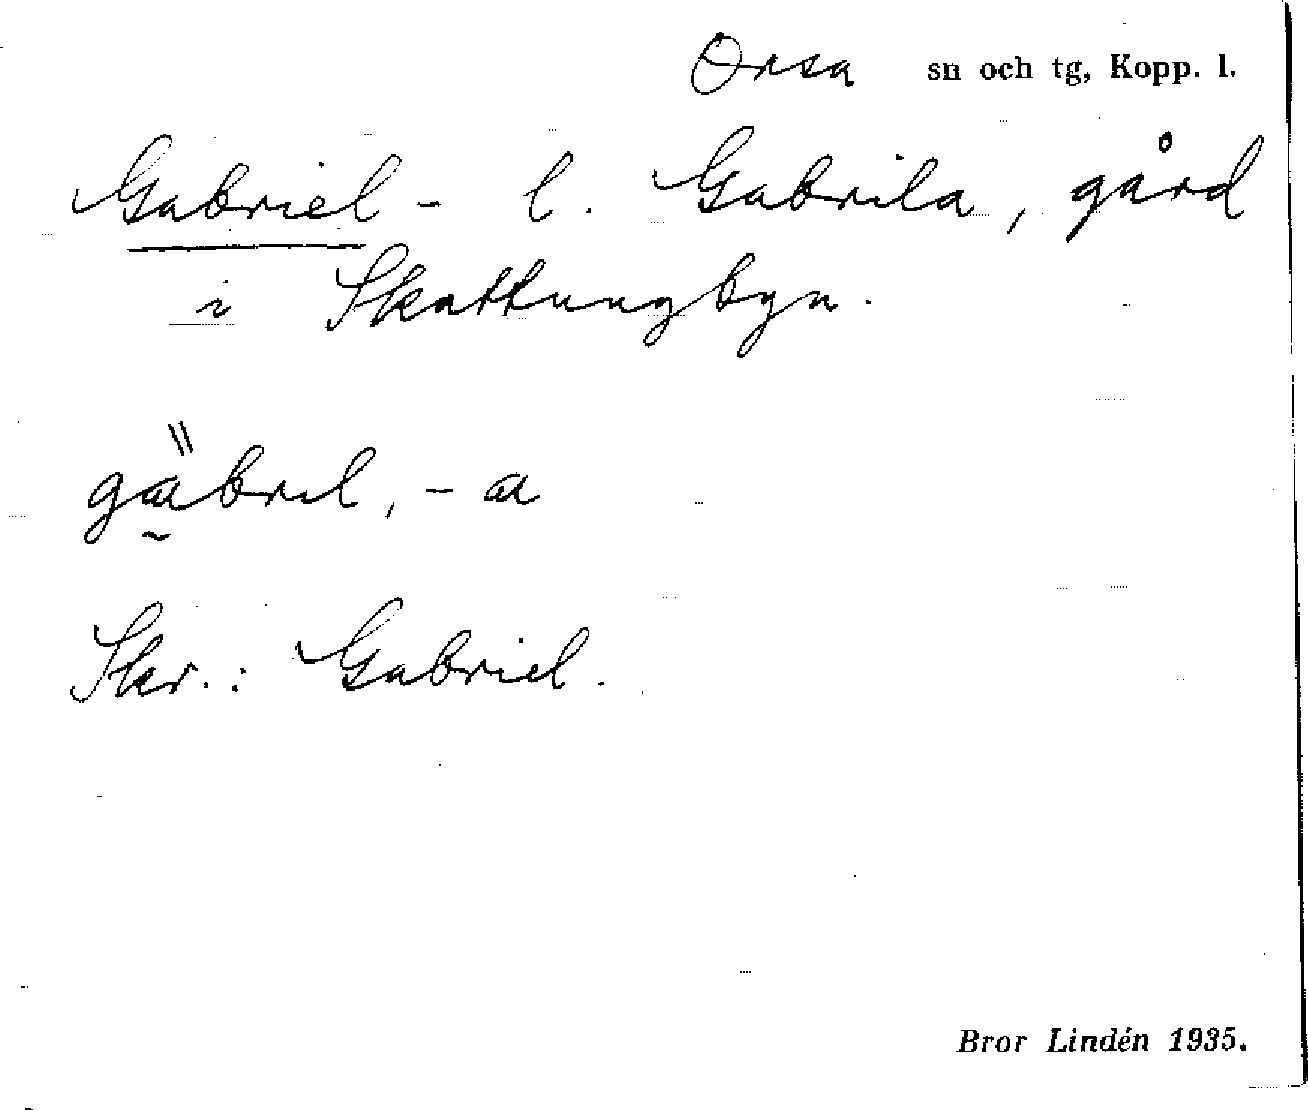 Orsa sn och tg, Kopp. l.
Gabriel- l. Gabrila, gård
i Skattungbyn.
gäbril, -a
Skr.: Gabriel.
Bror Lindén 1935.